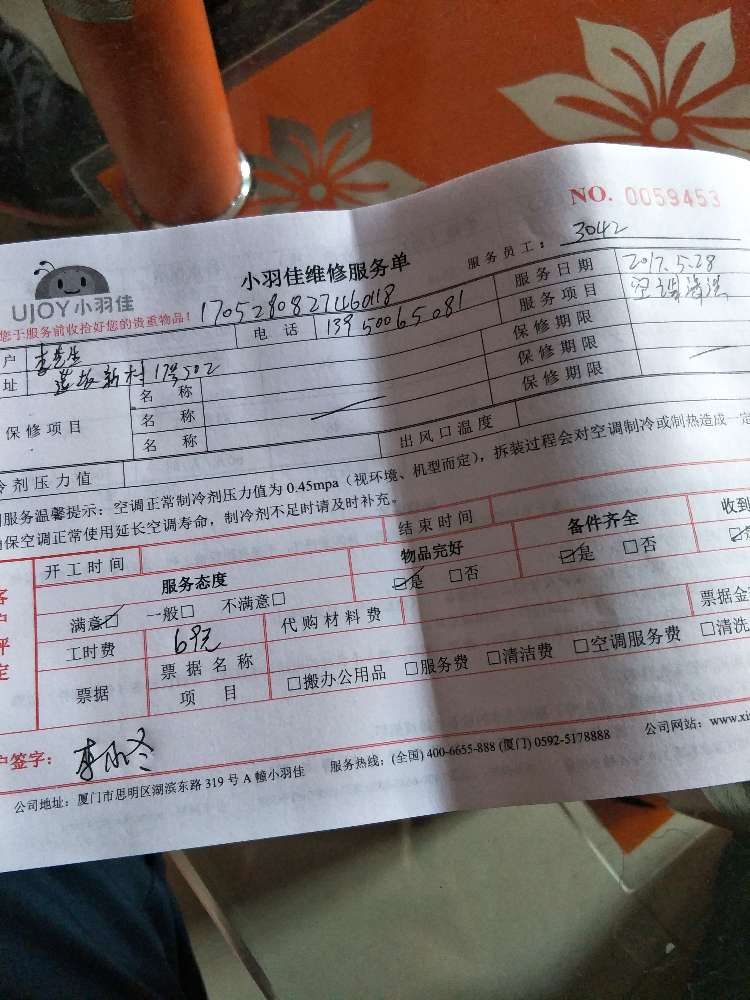 NO. 0059453
小羽佳维修服务单
服务员工：3042
UJOY小羽佳
您于服务前收拾好您的贵重物品！
1705280827460118
服务日期 2017.5.28
户 李先生
电话 13950065081
服务项目 空调清洗
址 莲坂新村17号502
保修期限
保修期限
保修期限
保修项目
名称
名称
名称
冷剂压力值
出风口温度
服务温馨提示：空调正常制冷剂压力值为 0.45mpa（视环境、机型而定），拆装过程会对空调制冷或制热造成一定
保空调正常使用延长空调寿命，制冷剂不足时请及时补充。
客户评定
开工时间
结束时间
服务态度
物品完好
备件齐全
收到
满意☑ 一般□ 不满意□
☑是 □否
☑是 □否
工时费 69元
代购材料费
票据
票据名称
项目
□搬办公用品 □服务费 □清洁费 □空调服务费 □清洗
票据金
户签字：李小冬
公司地址：厦门市思明区湖滨东路 319 号 A 幢小羽佳
服务热线：(全国) 400-6655-888 (厦门) 0592-5178888
公司网站：www.xi